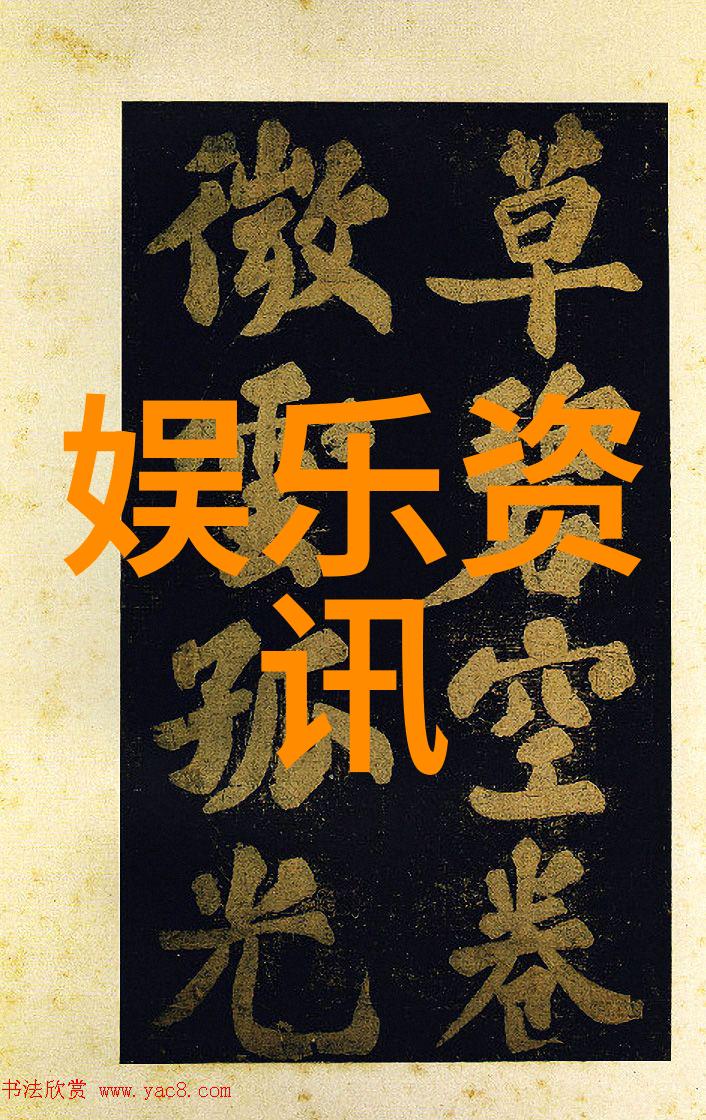 草碧空卷
微雲孤光
娱乐资
讯
书法欣赏 www.yac8.com